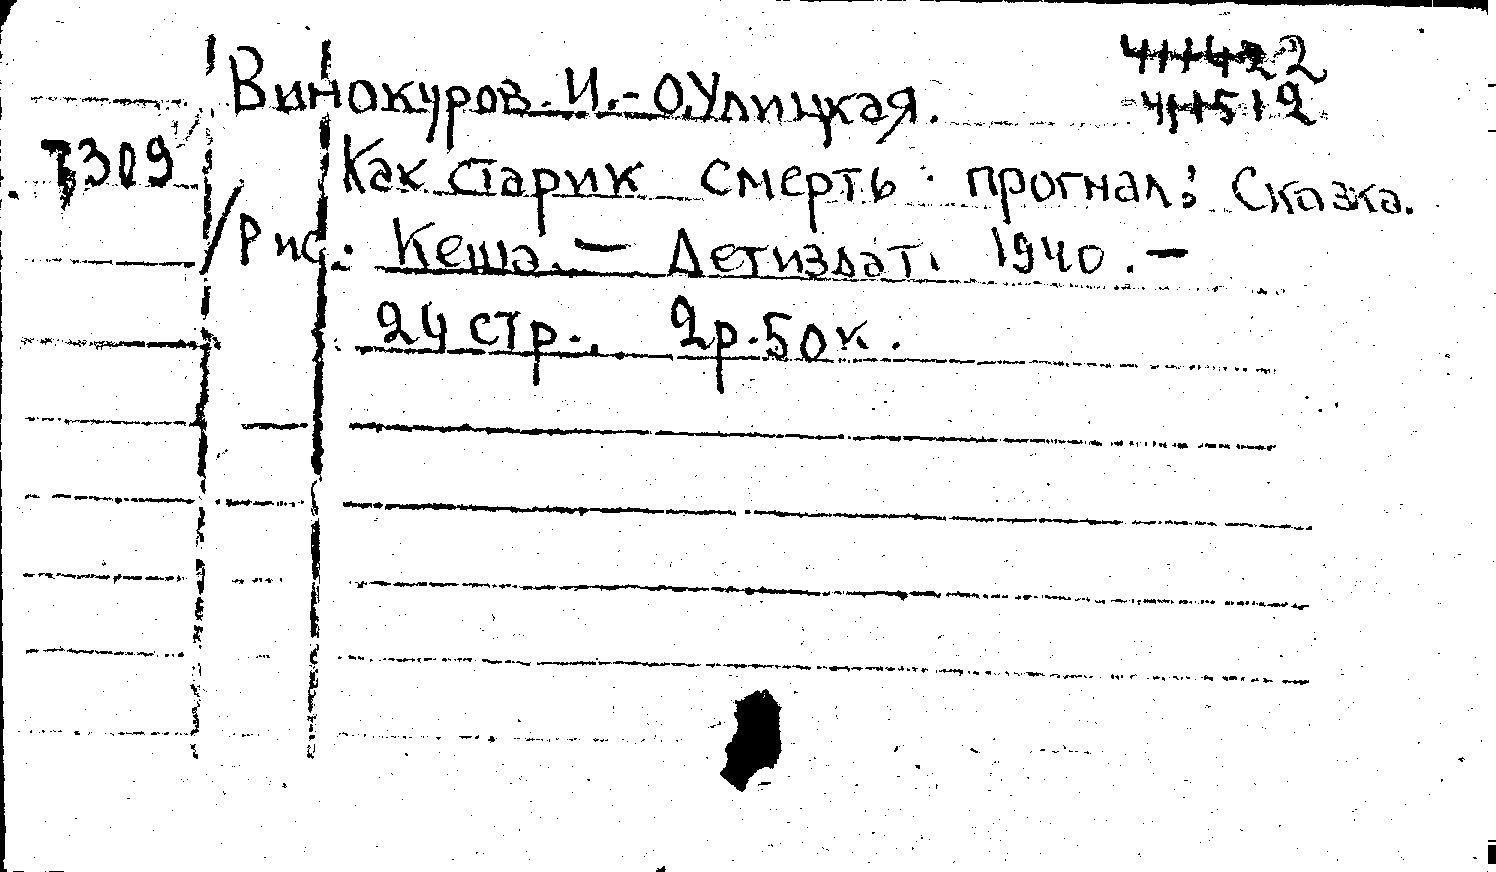 Винокуров. И.-О.Улицкая.
411422
411512
Т309
Как старик смерть прогнал: Сказка.
Рис. Кеша. — Детиздат. 1940. —
24 стр. 2р.50к.